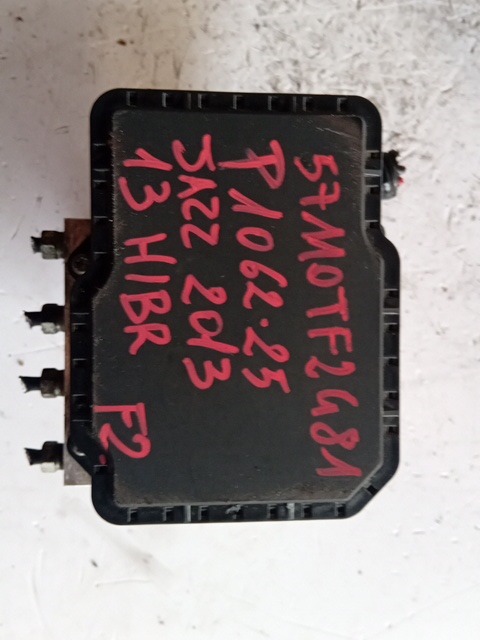 57M0TF2G81
P1062.25
JAZZ 2013
13 HIBR
F2